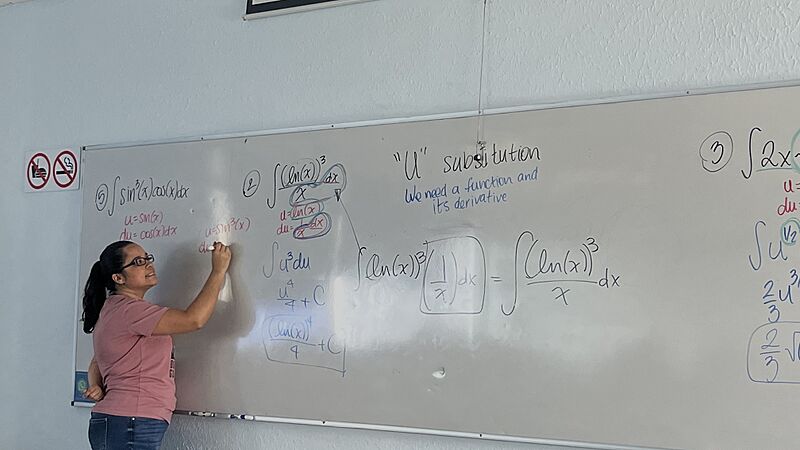 ⑤ ∫ sin³(x) cos(x) dx
u = sin(x)
du = cos(x) dx
u = sin³(x)
du
② ∫ (ln(x))³/x dx
u = ln(x)
du = 1/x dx
∫ u³ du
u⁴/4 + C
(ln(x))⁴/4 + C
"U" substitution
We need a function and
it's derivative
∫ (ln(x))³ (1/x) dx = ∫ (ln(x))³/x dx
③ ∫ 2x
u =
du =
∫ u^1/2
2/3 u³/
2/3 √